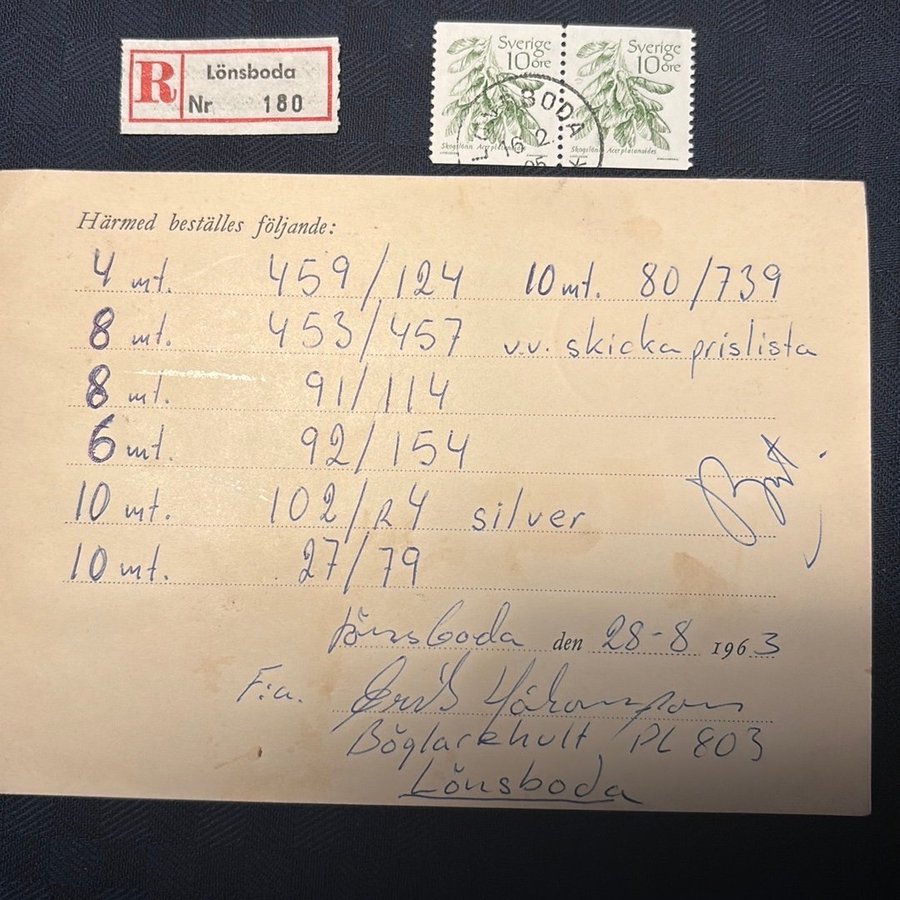 R Lönsboda
Nr 180
Sverige 10 öre
Skogslönn Acer platanoides
Sverige 10 öre
Skogslönn Acer platanoides
LÖNSBODA
16 2
Härmed beställes följande:
4 mt. 459/124 10 mt. 80/739
8 mt. 453/457 v.v. skicka prislista
8 mt. 91/114
6 mt. 92/154
10 mt. 102/R4 silver
10 mt. 27/79
Lönsboda den 28-8 1963
F:a. Erik Håkansson
Böglarehult PL 803
Lönsboda